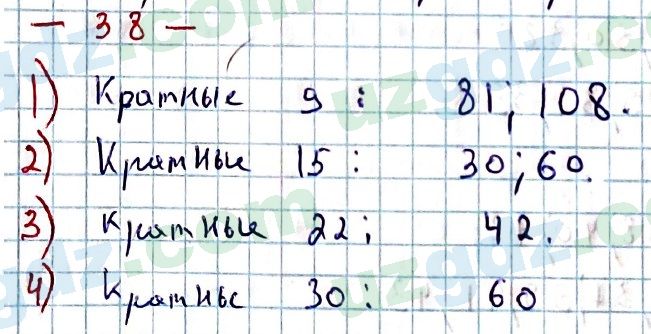 — 38 —
1) Кратные 9 : 81; 108.
2) Кратные 15 : 30; 60.
3) Кратные 22 ; 42.
4) Кратные 30 : 60